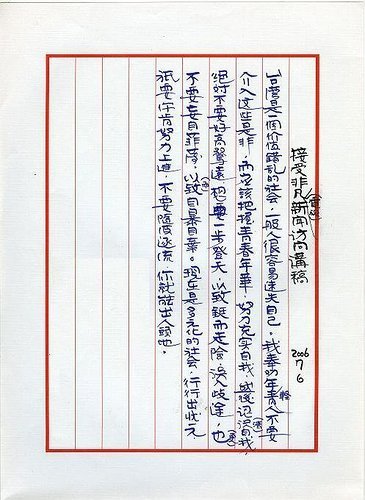 接受非凡(電視)新聞訪問講稿
2006
7
6
台灣是一個价值錯乱的社会,一般人很容易迷失自己。我奉劝年青人不要
介入这些是非,而应該把握青春年華,努力充实自我,認清自我,
絕対不要好高騖遠,想要一步登天,以致鋌而走險,误入歧途,也
不要妄自菲薄,以致自暴自棄。現在是多元化的社会,行行出状元
祇要你肯努力上進,不要隨波逐流 你就能出人頭地。